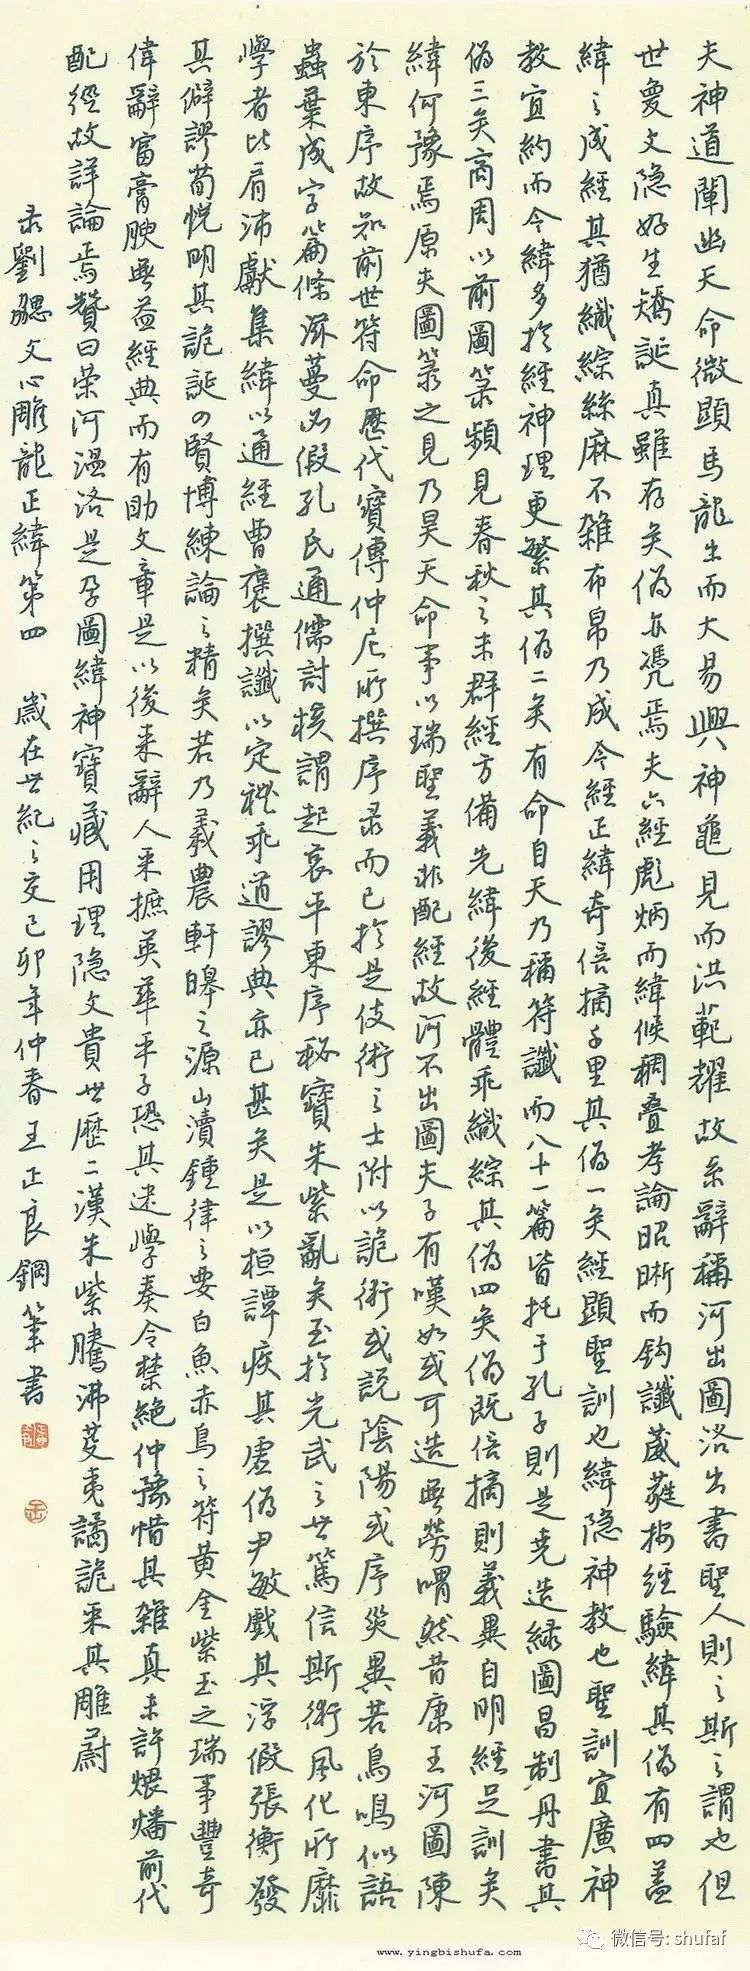 夫神道闡幽天命微顯馬龍出而大易興神龜見而洪範耀故系辭稱河出圖洛出書聖人則之斯之謂也但
世夐文隐好生矯誕真雖存矣偽亦憑焉夫六經彪炳而緯候稠疊孝論昭晰而鈎讖葳蕤按經驗緯其偽有四蓋
緯之成經其猶織綜絲麻不雜布帛乃成今經正緯奇倍摘千里其偽一矣經顯聖訓也緯隐神教也聖訓宜廣神
教宜約而今緯多於經神理更繁其偽二矣有命自天乃稱符讖而八十一篇皆托于孔子則是堯造綠圖昌制丹書其
偽三矣商周以前圖箓頻見春秋之末群經方備先緯後經體乖織綜其偽四矣偽既倍摘則義異自明經足訓矣
緯何豫焉原夫圖箓之見乃昊天命事以瑞聖義非配經故河不出圖夫子有嘆如或可造無勞喟然昔康王河圖陳
於東序故知前世符命歷代寶傳仲尼所撰序录而已於是伎術之士附以詭術或說陰陽或序災異若鳥鳴似語
蟲葉成字篇條滋蔓必假孔氏通儒討核謂起哀平東序秘寶朱紫亂矣至於光武之世篤信斯術風化所靡
學者比肩沛獻集緯以通經曹褒撰讖以定禮乖道謬典亦已甚矣是以桓譚疾其虛偽尹敏戲其浮假張衡發
其僻謬荀悅明其詭誕四賢博練論之精矣若乃羲農軒皞之源山瀆鍾律之要白魚赤烏之符黃金紫玉之瑞事豐奇
偉辭富膏腴無益經典而有助文章是以後來辭人采摭英華平子恐其迷學奏令禁絕仲豫惜其雜真未許煨燔前代
配經故詳論焉贊曰榮河溫洛是孕圖緯神寶藏用理隐文貴世歷二漢朱紫騰沸芟夷譎詭采其雕蔚
录劉勰文心雕龍正緯第四 歲在世紀之交己卯年仲春王正良鋼筆書
微信号: shufaf
www.yingbishufa.com